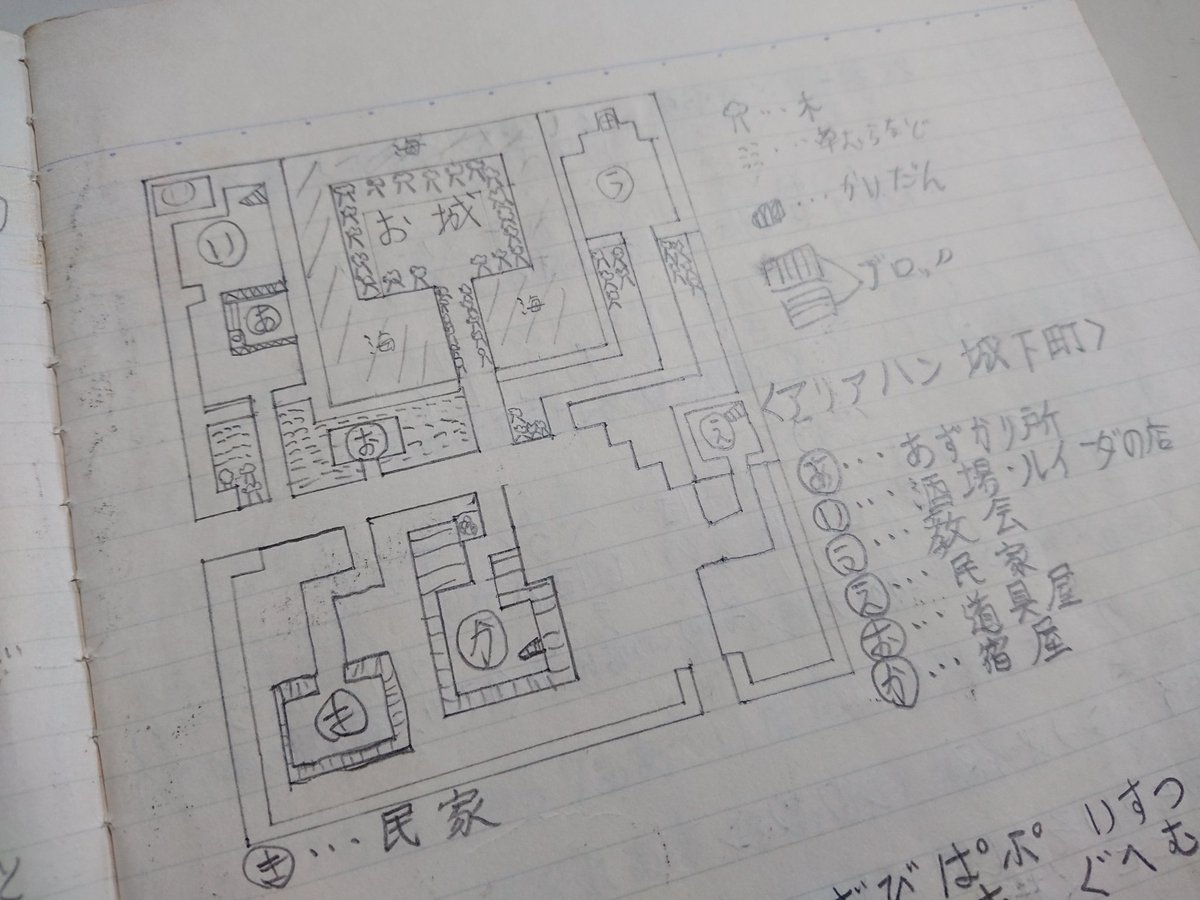 海
お城
海
海
い
あ
う
え
お
か
き
…木
…草むらなど
…かいだん
ブロック
〈アリアハン 城下町〉
あ…あずかり所
い…酒場・ルイーダの店
う…教会
え…民家
お…道具屋
か…宿屋
き…民家
ざびぱぷ いすつ
ぐへむ